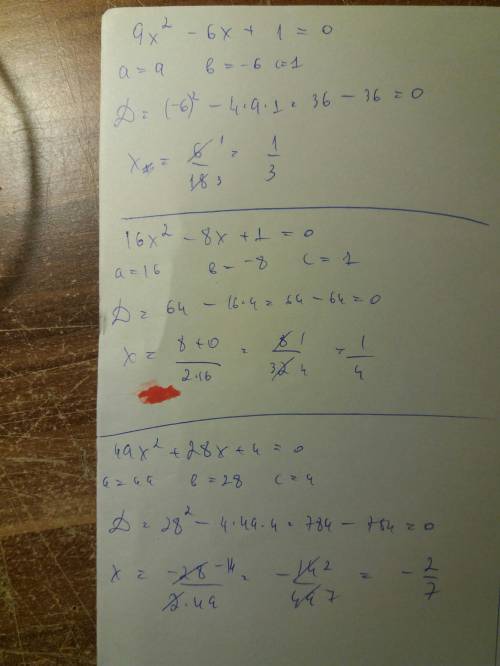 9x² - 6x + 1 = 0
a = 9 в = -6 c = 1
D = (-6)² - 4·9·1 = 36 - 36 = 0
x = 6 1 / 18 3 = 1/3
16x² - 8x + 1 = 0
a = 16 в = -8 c = 1
D = 64 - 16·4 = 64 - 64 = 0
x = 8 + 0 / 2·16 = 8 1 / 32 4 = 1/4
49x² + 28x + 4 = 0
a = 49 в = 28 c = 4
D = 28² - 4·49·4 = 784 - 784 = 0
x = -28 -14 / 2·49 = -14 2 / 49 7 = -2/7